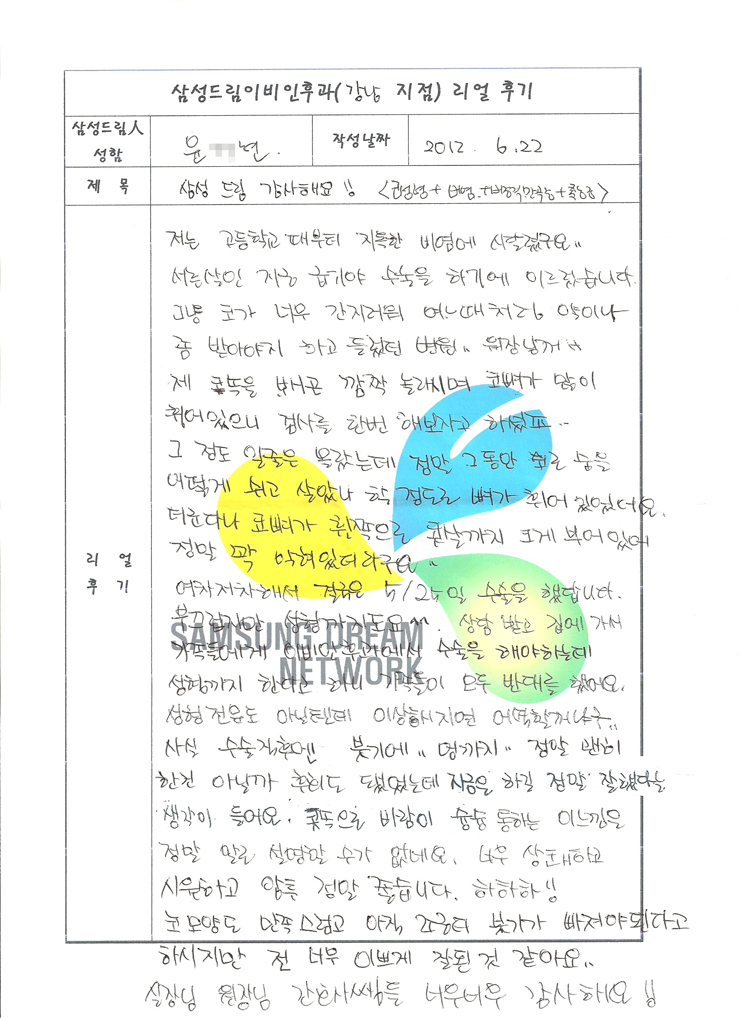 삼성드림이비인후과(강남 지점) 리얼 후기
삼성드림人 성함
윤 년.
작성날짜
2012. 6.22
제 목
삼성 드림 감사해요!!
리 얼 후 기
저는 고등학교때부터 지독한 비염에 시달렸구요..
서른살인 지금 급기야 수술을 하기에 이르렀습니다.
그냥 코가 너무 간지러워 여느때처럼 약이나
좀 받아야지 하고 들렀던 병원.. 원장님께서
제 콧속을 보시곤 깜짝 놀라시며 코뼈가 많이
휘어있으니 검사를 한번 해보자고 하셨죠..
그 정도 일줄은 몰랐는데 정말 그동안 숨을
어떻게 쉬고 살았나 할 정도로 뼈가 휘어 있었어요.
더군다나 코뼈가 휜쪽으로 콧살까지 크게 부어있어
정말 꽉 막혀있더라구요..
여차저차해서 결국은 5/25일 수술을 했답니다.
부끄럽지만 성형까지도요^^. 상담 받고 집에 가서
가족들에게 이비인후과에서 수술을 해야하는데
SAMSUNG DREAM NETWORK
성형까지 한다고 하니 가족들이 모두 반대를 했어요.
성형전문도 아닐텐데 이상해지면 어떡할꺼냐구..
사실 수술직후엔 붓기에.. 멍까지.. 정말 괜히
한건 아닐까 후회도 됐었는데 지금은 하길 정말 잘했다는
생각이 들어요. 콧속으로 바람이 슝슝 통하는 이느낌은
정말 말로 설명할 수가 없네요. 너무 상쾌하고
시원하고 암튼 정말 좋습니다. 하하하!!
코모양도 만족스럽고 아직 조금더 붓기가 빠져야된다고
하시지만 전 너무 이쁘게 잘된것 같아요..
실장님 원장님 간호사쌤들 너무너무 감사해요!!